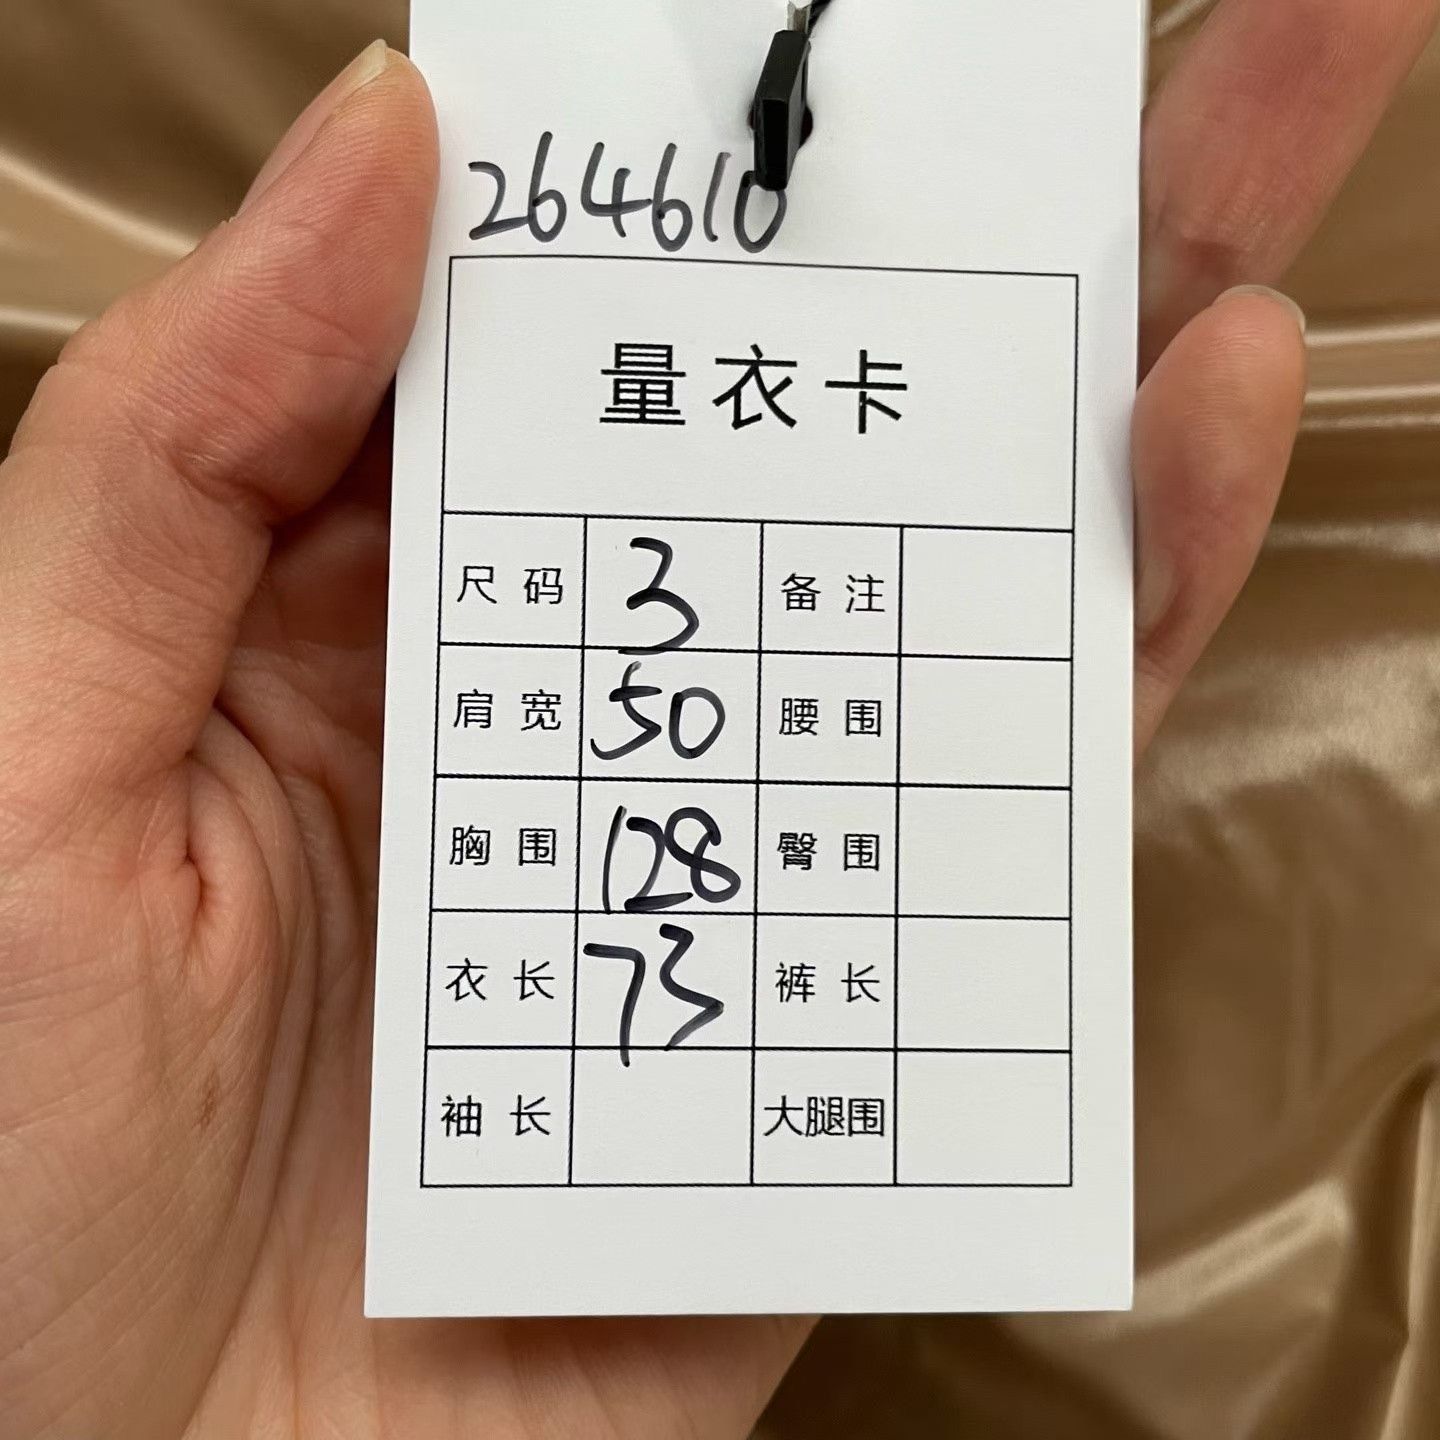 264610
量衣卡
尺码 3 备注
肩宽 50 腰围
胸围 128 臀围
衣长 73 裤长
袖长 大腿围